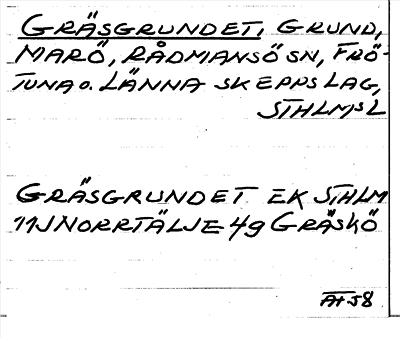 GRÄSGRUNDET, GRUND,
MARÖ, RÅDMANSÖ SN, FRÖ-
TUNA O. LÄNNA SKEPPSLAG,
STHLMS L
GRÄSGRUNDET EK STHLM
11J NORRTÄLJE 4g GRÄSKÖ
ÄH 58